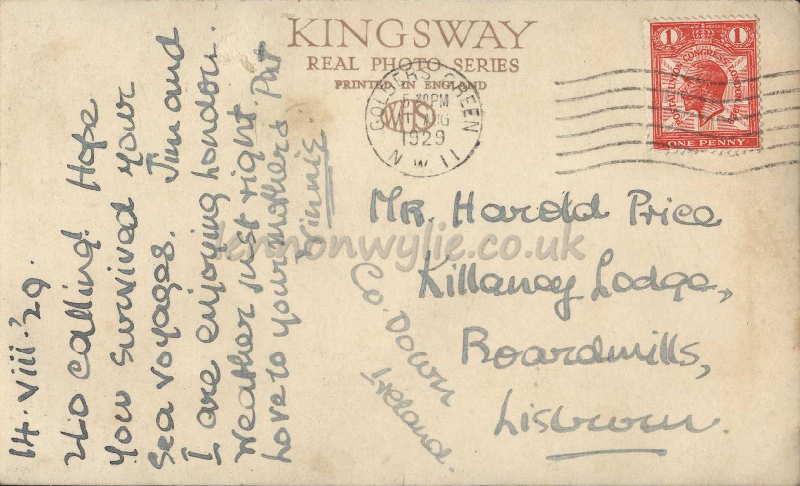 KINGSWAY
REAL PHOTO SERIES
PRINTED IN ENGLAND
WHS
GOLDERS GREEN
PM
AUG
1929
N.W.11
1 1
POSTAL UNION CONGRESS LONDON 1929
ONE PENNY
14.VIII.'29.
2LO calling! Hope
you survived your
Sea voyages. Jim and
I are enjoying London.
Weather just right.
Love to your mother & Pat
Winnie.
Mr. Harold Price
Killaney Lodge,
Boardmills,
Lisburn.
Co. Down
Ireland.
lennonwylie.co.uk